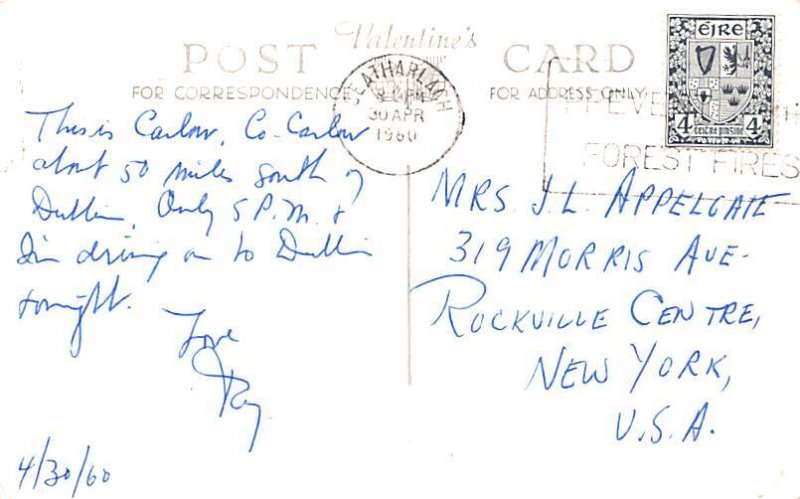 Valentine's
POST CARD
FOR CORRESPONDENCE
FOR ADDRESS ONLY
CEATHARLACH
30 APR
1960
PREVE
FOREST FIRES
éire
4 4
This is Carlow, Co. Carlow
about 50 miles south of
Dublin. Only 5 P.M. &
I'm driving on to Dublin
tonight.
Love
Ray
4/30/60
MRS J.L. APPELGATE
319 MORRIS AVE.
ROCKVILLE CENTRE,
NEW YORK,
U.S.A.